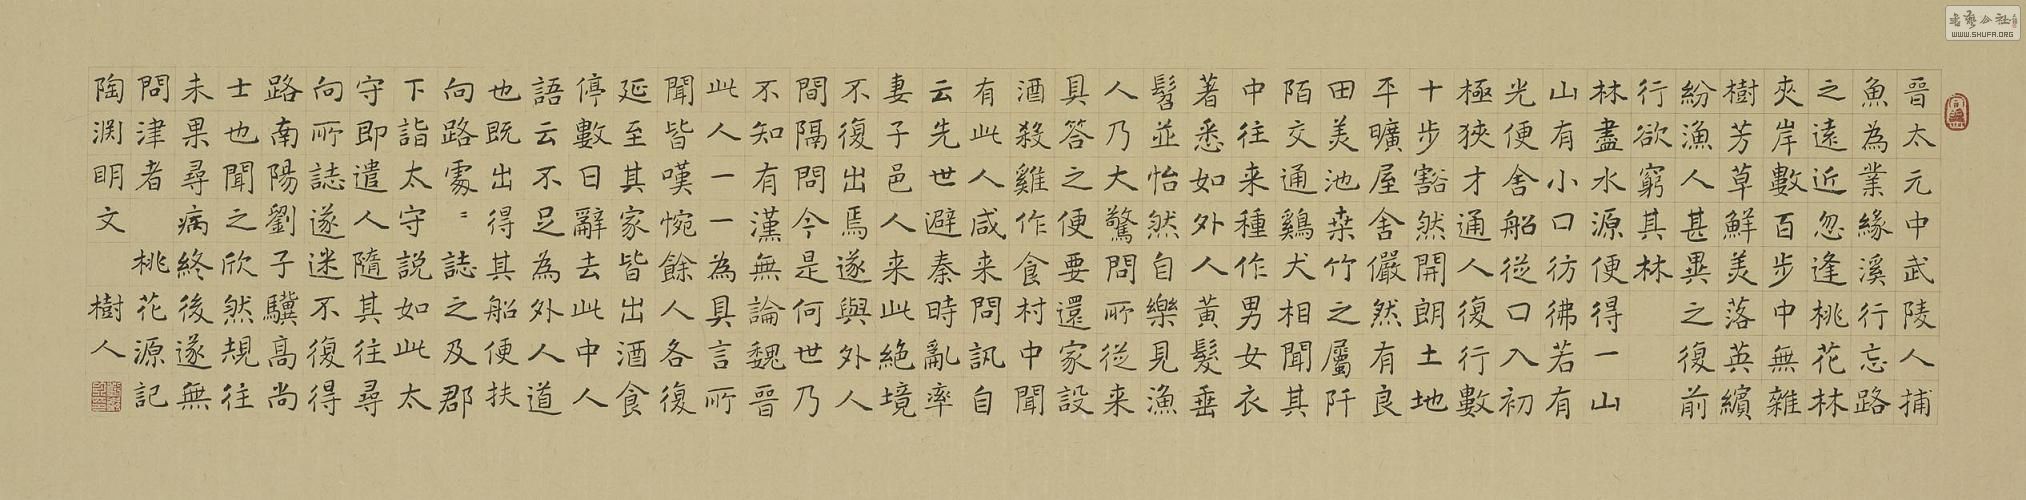 晉太元中武陵人捕
魚為業緣溪行忘路
之遠近忽逢桃花林
夾岸數百步中無雜
樹芳草鮮美落英繽
紛漁人甚異之復前
行欲窮其林
林盡水源便得一山
山有小口彷彿若有
光便舍船從口入初
極狹才通人復行數
十步豁然開朗土地
平曠屋舍儼然有良
田美池桒竹之屬阡
陌交通鷄犬相聞其
中往来種作男女衣
著悉如外人黃髮垂
髫並怡然自樂見漁
人乃大驚問所從来
具答之便要還家設
酒殺雞作食村中聞
有此人咸来問訊自
云先世避秦時亂率
妻子邑人来此絶境
不復出焉遂與外人
間隔問今是何世乃
不知有漢無論魏晉
此人一一為具言所
聞皆嘆惋餘人各復
延至其家皆出酒食
停數日辭去此中人
語云不足為外人道
也既出得其船便扶
向路處〻誌之及郡
下詣太守説如此太
守即遣人隨其往尋
向所誌遂迷不復得
路南陽劉子驥高尚
士也聞之欣然規往
未果尋病終後遂無
問津者 桃花源記
陶渊明文 樹人
书艺公社
WWW.SHUFA.ORG